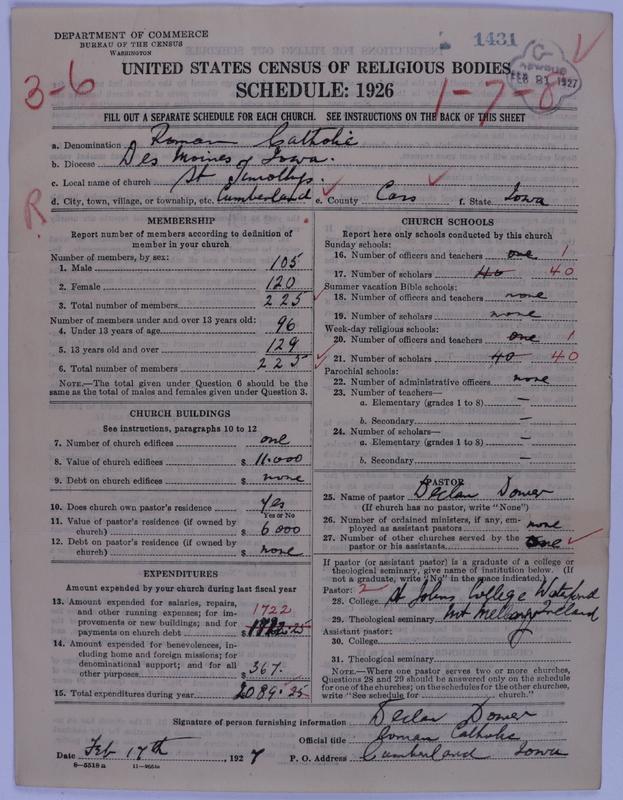 DEPARTMENT OF COMMERCE
BUREAU OF THE CENSUS
WASHINGTON
1431
FEB 21 1927
UNITED STATES CENSUS OF RELIGIOUS BODIES
SCHEDULE: 1926
3-6
1-7-8
FILL OUT A SEPARATE SCHEDULE FOR EACH CHURCH. SEE INSTRUCTIONS ON THE BACK OF THIS SHEET
a. Denomination Roman Catholic
b. Diocese Des Moines, Iowa.
c. Local name of church St Timothys.
d. City, town, village, or township, etc. Cumberland e. County Cass f. State Iowa
R
MEMBERSHIP
Report number of members according to definition of
member in your church
Number of members, by sex:
1. Male 105
2. Female 120
3. Total number of members 225
Number of members under and over 13 years old:
4. Under 13 years of age 96
5. 13 years old and over 129
6. Total number of members 225
NOTE.—The total given under Question 6 should be
same as the total of males and females given under Question 3.
CHURCH BUILDINGS
See instructions, paragraphs 10 to 12
7. Number of church edifices one
8. Value of church edifices $ 11.000
9. Debt on church edifices $ none
10. Does church own pastor's residence Yes
Yes or No
11. Value of pastor's residence (if owned by
church) $ 6000
12. Debt on pastor's residence (if owned by
church) $ none
EXPENDITURES
Amount expended by your church during last fiscal year
13. Amount expended for salaries, repairs,
and other running expenses; for im-
provements or new buildings; and for
payments on church debt $ 1722
14. Amount expended for benevolences, in-
cluding home and foreign missions; for
denominational support; and for all
other purposes $ 367.
15. Total expenditures during year $ 2089.25
CHURCH SCHOOLS
Report here only schools conducted by this church
Sunday schools:
16. Number of officers and teachers one 1
17. Number of scholars 40 40
Summer vacation Bible schools:
18. Number of officers and teachers none
19. Number of scholars none
Week-day religious schools:
20. Number of officers and teachers one 1
21. Number of scholars 40 40
Parochial schools:
22. Number of administrative officers none
23. Number of teachers—
a. Elementary (grades 1 to 8) —
b. Secondary —
24. Number of scholars—
a. Elementary (grades 1 to 8) —
b. Secondary —
PASTOR
25. Name of pastor Declan Dower
(If church has no pastor, write "None")
26. Number of ordained ministers, if any, em-
ployed as assistant pastors none
27. Number of other churches served by the
pastor or his assistants one
If pastor (or assistant pastor) is a graduate of a college or
theological seminary, give name of institution below. (If
not a graduate, write "No" in the space indicated.)
Pastor: 2
28. College St Johns College Waterford
29. Theological seminary Mt Melleray Ireland
Assistant pastor:
30. College
31. Theological seminary
NOTE.—Where one pastor serves two or more churches,
Questions 28 and 29 should be answered only on the schedule
for one of the churches; on the schedules for the other churches,
write "See schedule for church."
Signature of person furnishing information Declan Dower
Official title Roman Catholic
Date Feb 17th, 1927 P. O. Address Cumberland Iowa
8-5518a